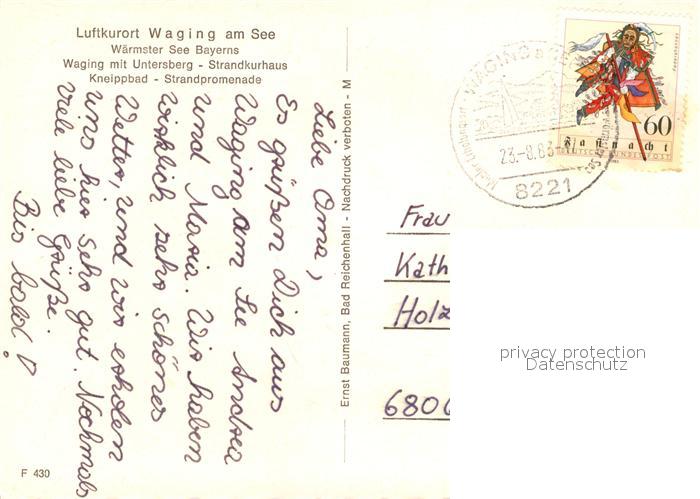 Luftkurort Waging am See
Wärmster See Bayerns
Waging mit Untersberg - Strandkurhaus
Kneippbad - Strandpromenade
Liebe Oma,
Es grüßen Dich aus
Waging am See Andrea
und Maria. Wir haben
wirklich sehr schönes
Wetter, und wir erholen
uns hier sehr gut. Nochmals
viele liebe Grüße.
Bis bald!
F 430
Ernst Baumann, Bad Reichenhall - Nachdruck verboten - M
WAGING a
23.-8.83-1
8221
60
Fastnacht
DEUTSCHE BUNDESPOST
Frau
Kath
Holz
6806
privacy protection
Datenschutz